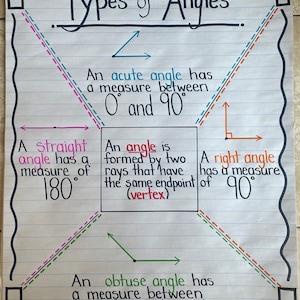 Types of Angles
An acute angle has
a measure between
0° and 90°
A straight
angle has a
measure of
180°
An angle is
formed by two
rays that have
the same endpoint
(vertex)
A right angle
has a measure
of 90°
An obtuse angle has
a measure between